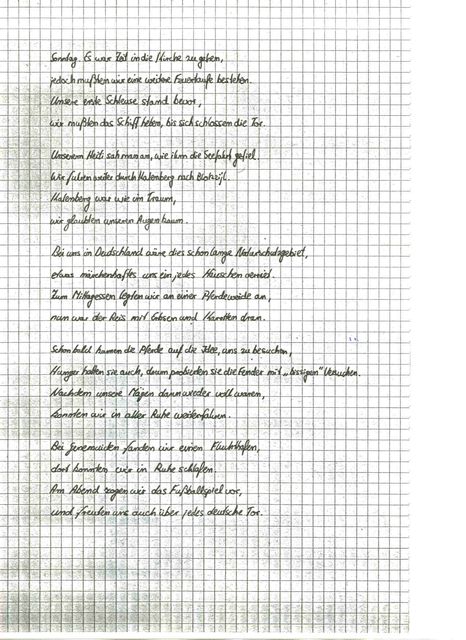 Sonntag. Es war Zeit in die Kirche zu gehen,
jedoch mußten wir eine weitere Feuertaufe bestehen.
Unsere erste Schleuse stand bevor,
wir mußten das Schiff heben, bis sich schlossen die Tor.
Unserem Heiti sah man an, wie ihm die Seefahrt gefiel.
Wir fuhren weiter durch Kalenberg nach Blokzijl.
Kalenberg war wie im Traum,
wir glaubten unseren Augen kaum.
Bei uns in Deutschland wäre dies schon lange Naturschutzgebiet,
etwas märchenhaftes uns ein jedes Häuschen verriet.
Zum Mittagessen legten wir an einer Pferdeweide an,
nun war der Reis mit Erbsen und Karotten dran.
Schon bald kamen die Pferde auf die Idee, uns zu besuchen,
Hunger hatten sie auch, drum probierten sie die Fender mit „bissigen" Versuchen.
Nachdem unsere Mägen dann wieder voll waren,
konnten wir in aller Ruhe weiterfahren.
Bei Genemuiden fanden wir einen Fluchthafen,
dort konnten wir in Ruhe schlafen.
Am Abend zogen wir das Fußballspiel vor,
und freuten uns auch über jedes deutsche Tor.